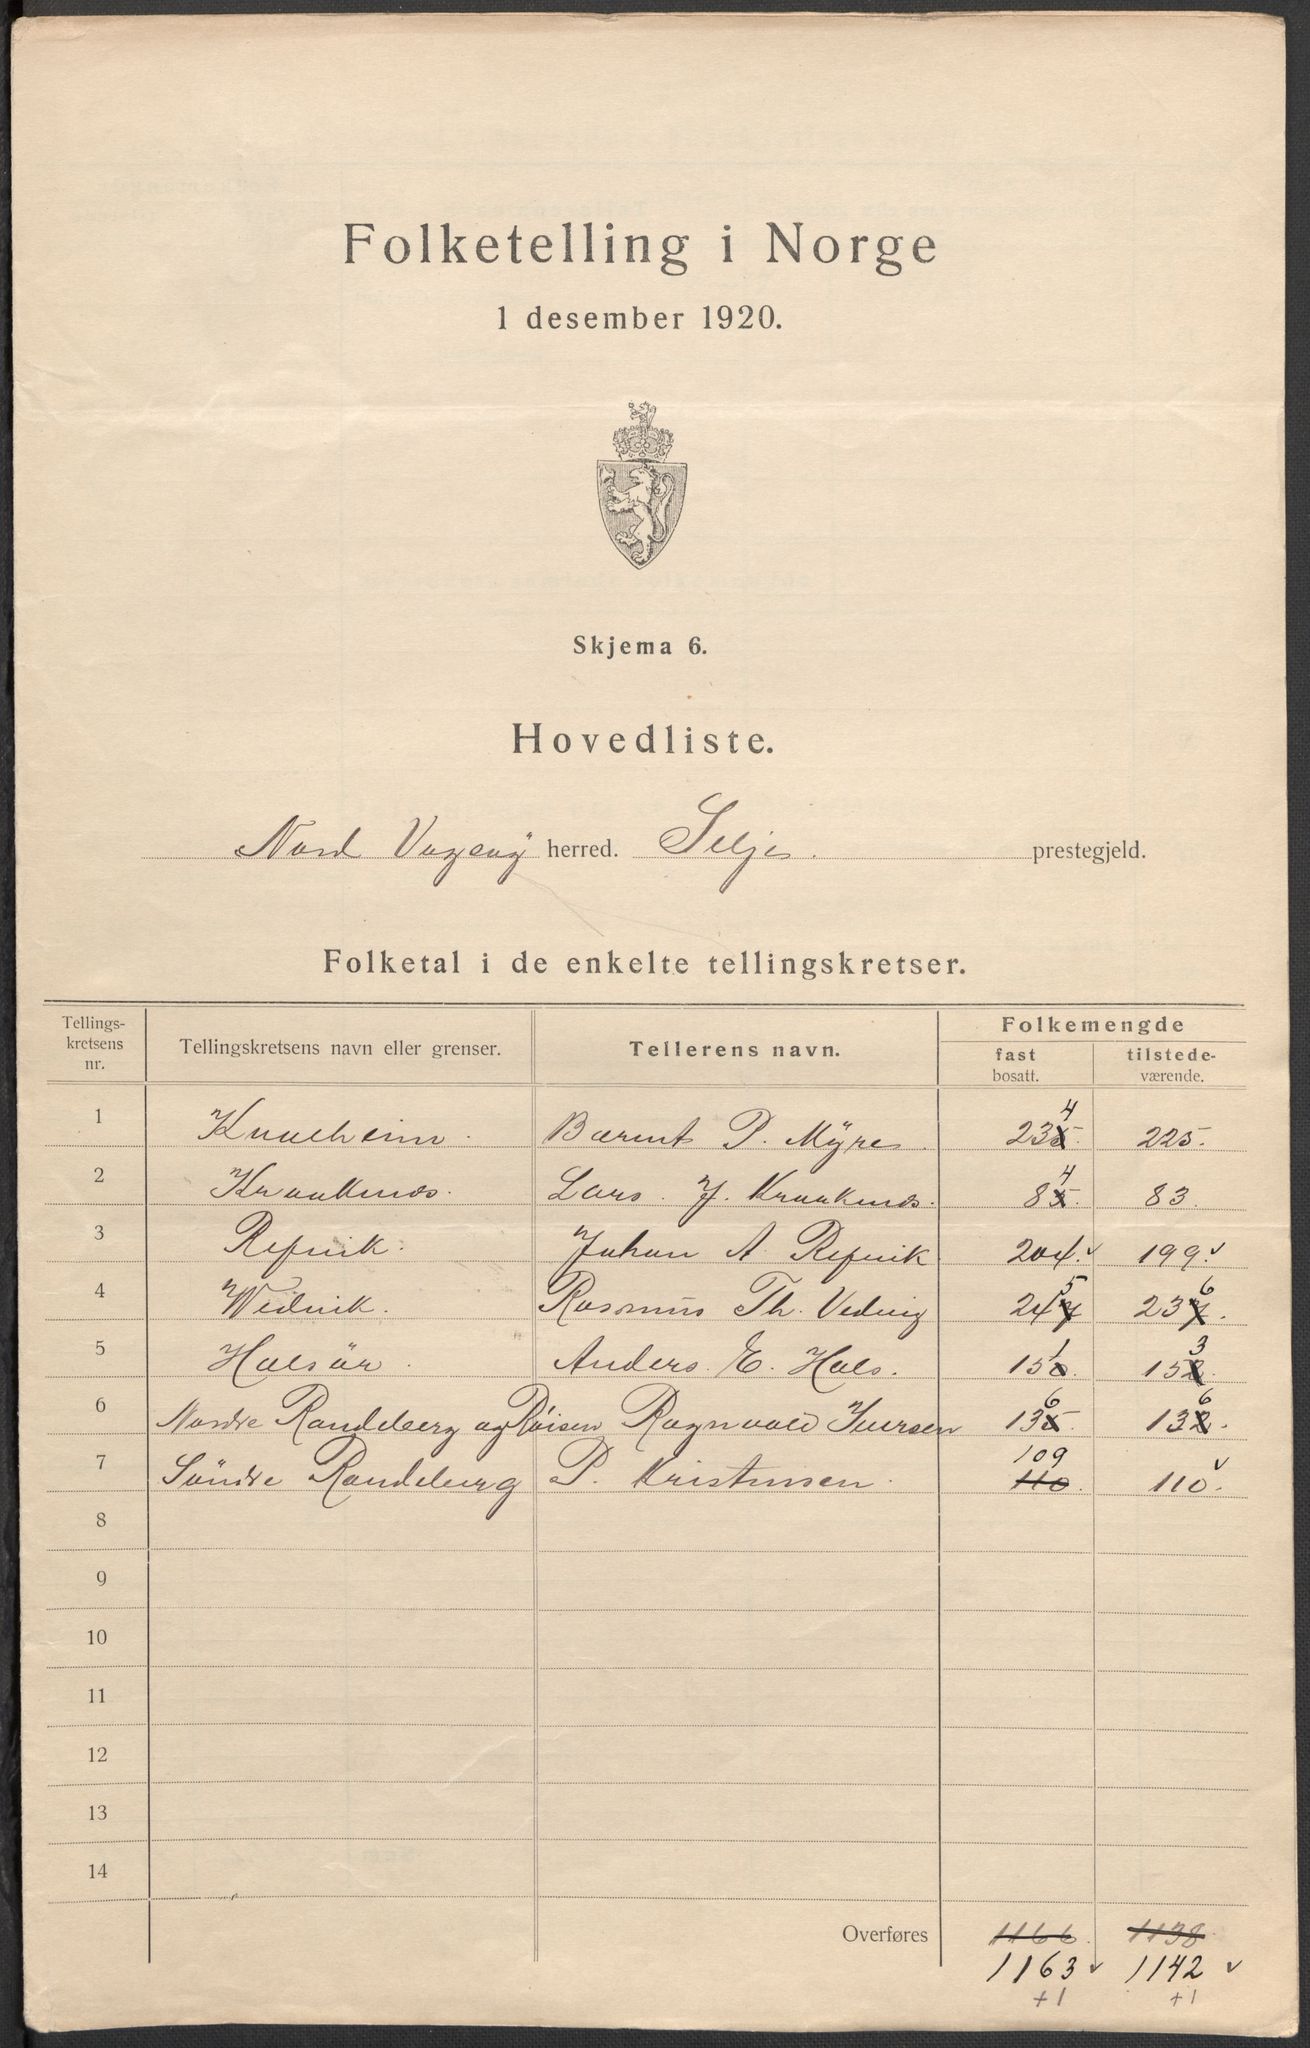 Folketelling i Norge
1 desember 1920.
Skjema 6.
Hovedliste.
Nord Vagsøy herred. Selje. prestegjeld.
Folketal i de enkelte tellingskretser.
Tellings-kretsens nr. Tellingskretsens navn eller grenser. Tellerens navn. Folkemengde fast bosatt. tilstede-værende.
1 Barent P. Myre. 235 4 225.
2 Kraakenes. Lars J. Kraakenes. 85 4 83.
3 Refvik. Johan A. Refvik 204. v 199. v
4 Wedvik. Rasmus Th. Vedvig 247 5 237 6.
5 Halsør. Anders E. Hals. 150 1 152 3
6 Nordre Raudeberg og Røisen Ragnvald Iversen 135 6 132 6.
7 Søndre Raudeberg P. Kristensen. 110 109 110. v
8
9
10
11
12
13
14
Overføres 1166 1138
1163 v 1142 v
+1 +1